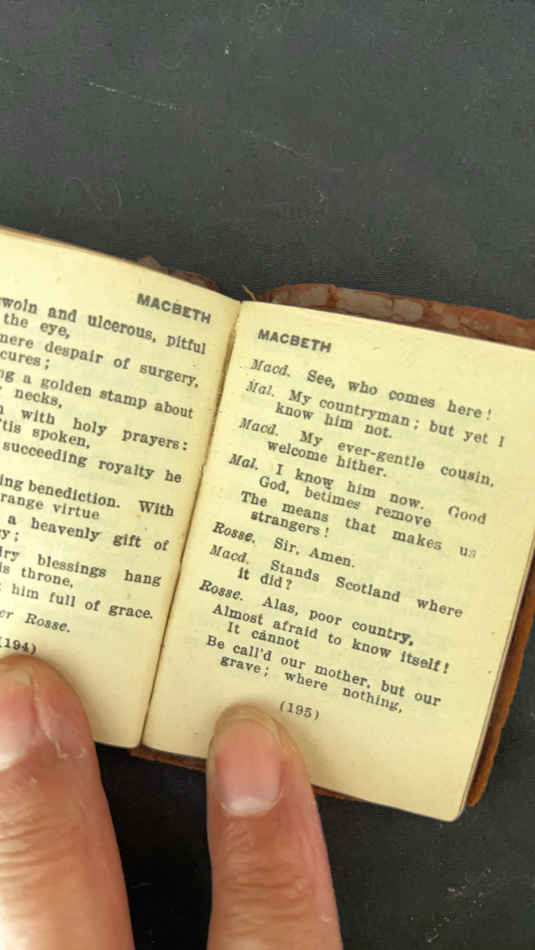 MACBETH
woln and ulcerous, pitful
the eye,
mere despair of surgery,
cures;
ng a golden stamp about
necks,
with holy prayers:
'tis spoken,
succeeding royalty he
ing benediction. With
range virtue
a heavenly gift of
y;
dry blessings hang
is throne,
him full of grace.
er Rosse.
(194)
MACBETH
Macd. See, who comes here!
Mal. My countryman; but yet I
know him not.
Macd. My ever-gentle cousin,
welcome hither.
Mal. I know him now. Good
God, betimes remove
The means that makes us
strangers!
Rosse. Sir, Amen.
Macd. Stands Scotland where
it did?
Rosse. Alas, poor country,
Almost afraid to know itself!
It cannot
Be call'd our mother, but our
grave; where nothing,
(195)